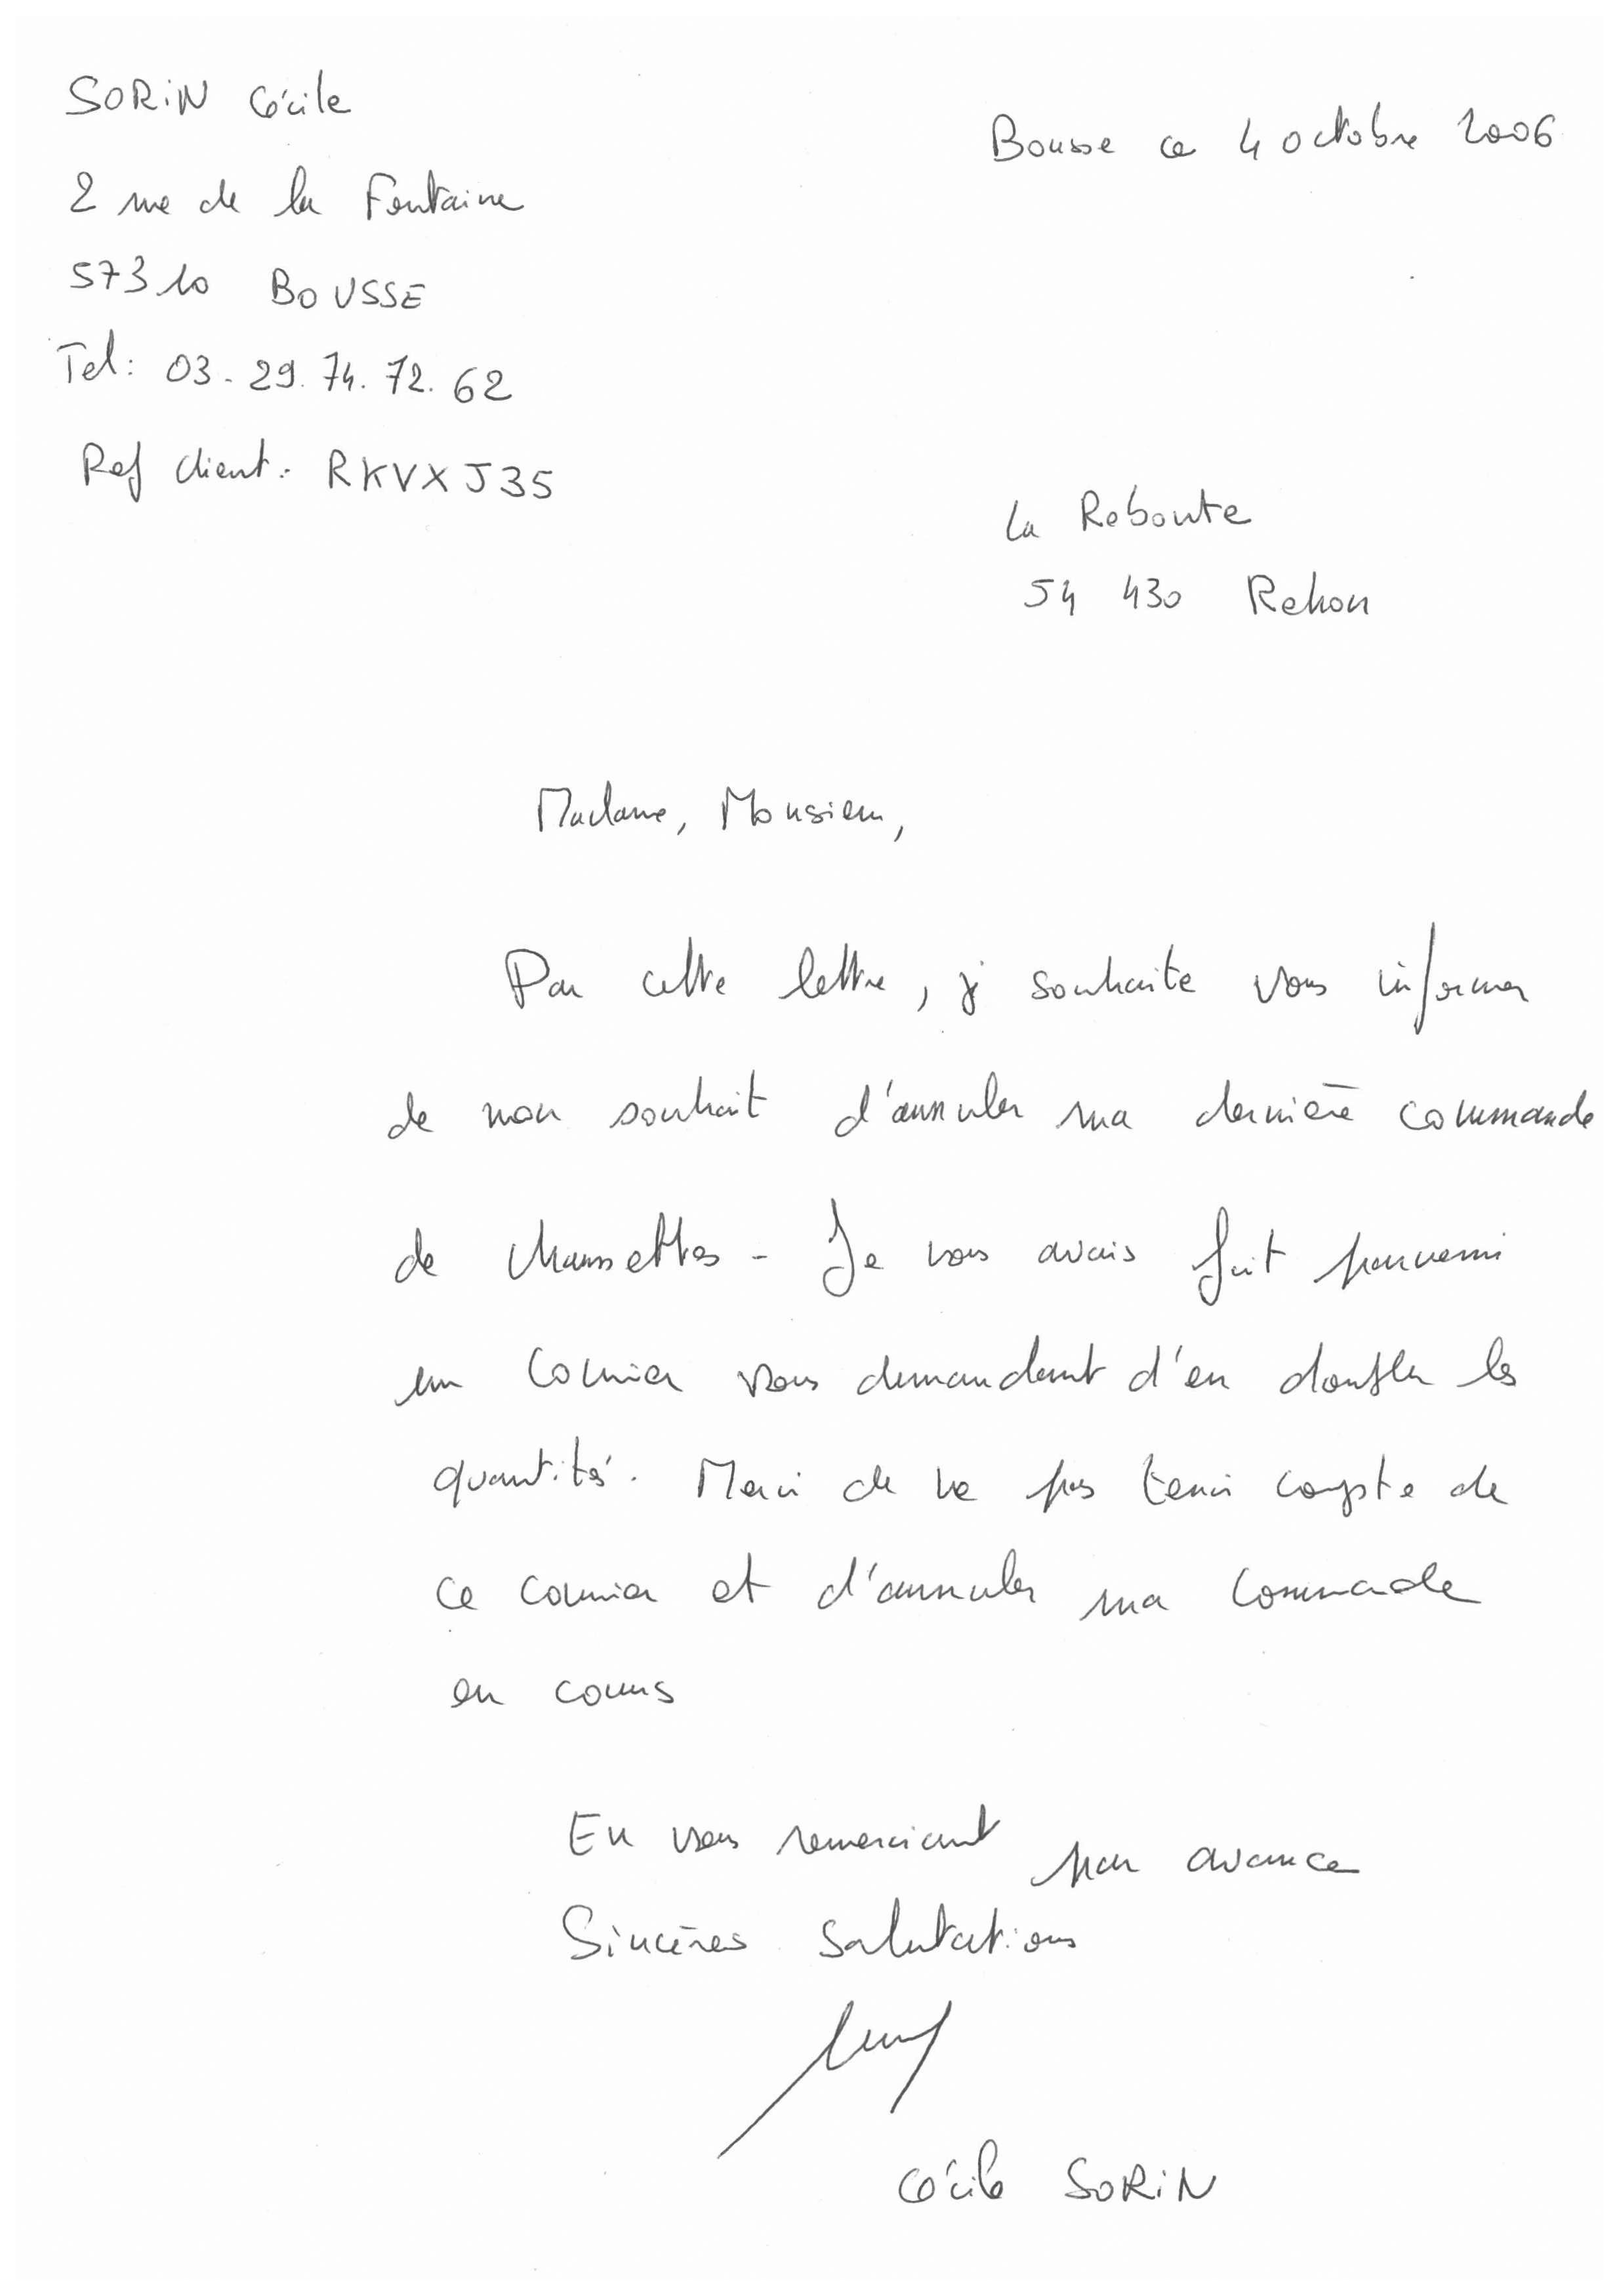 SORiN Cécile
2 rue de la Fontaine
57310 BOUSSE
Tel: 03.29.74.72.62
Ref client: RKVXJ35
Bousse ce 4 octobre 2006
La Reboute
54 430 Rehon
Madame, Monsieur,
Par cette lettre, j souhaite vous informer
de mon souhait d'annuler ma dernière commande
de chaussettes - Je vous avais fait parvenir
un courrier vous demandant d'en doubler les
quantités. Merci de ne pas tenir compte de
ce courrier et d'annuler ma commande
en cours
En vous remerciant par avance
Sincères salutations
Cécile SORiN